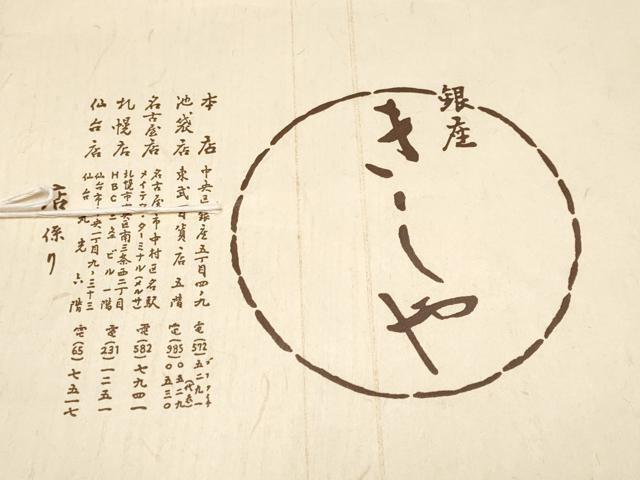 銀座
きしや
本店 中央区銀座五丁目四ノ九 電(572)五二九一(代表)
池袋店 東武百貨店五階 電(985)〇五二九 〇五三〇
名古屋店 名古屋市中村区名駅 メイテツ・ターミナル(メルサ) 電(582)七九四一
札幌店 札幌市中央区南三条西二丁目 HBC三条ビル一階 電(231)一二五一
仙台店 仙台市中央一丁目九ノ三十三 仙台丸光六階 電(65)七五一七
店 係り